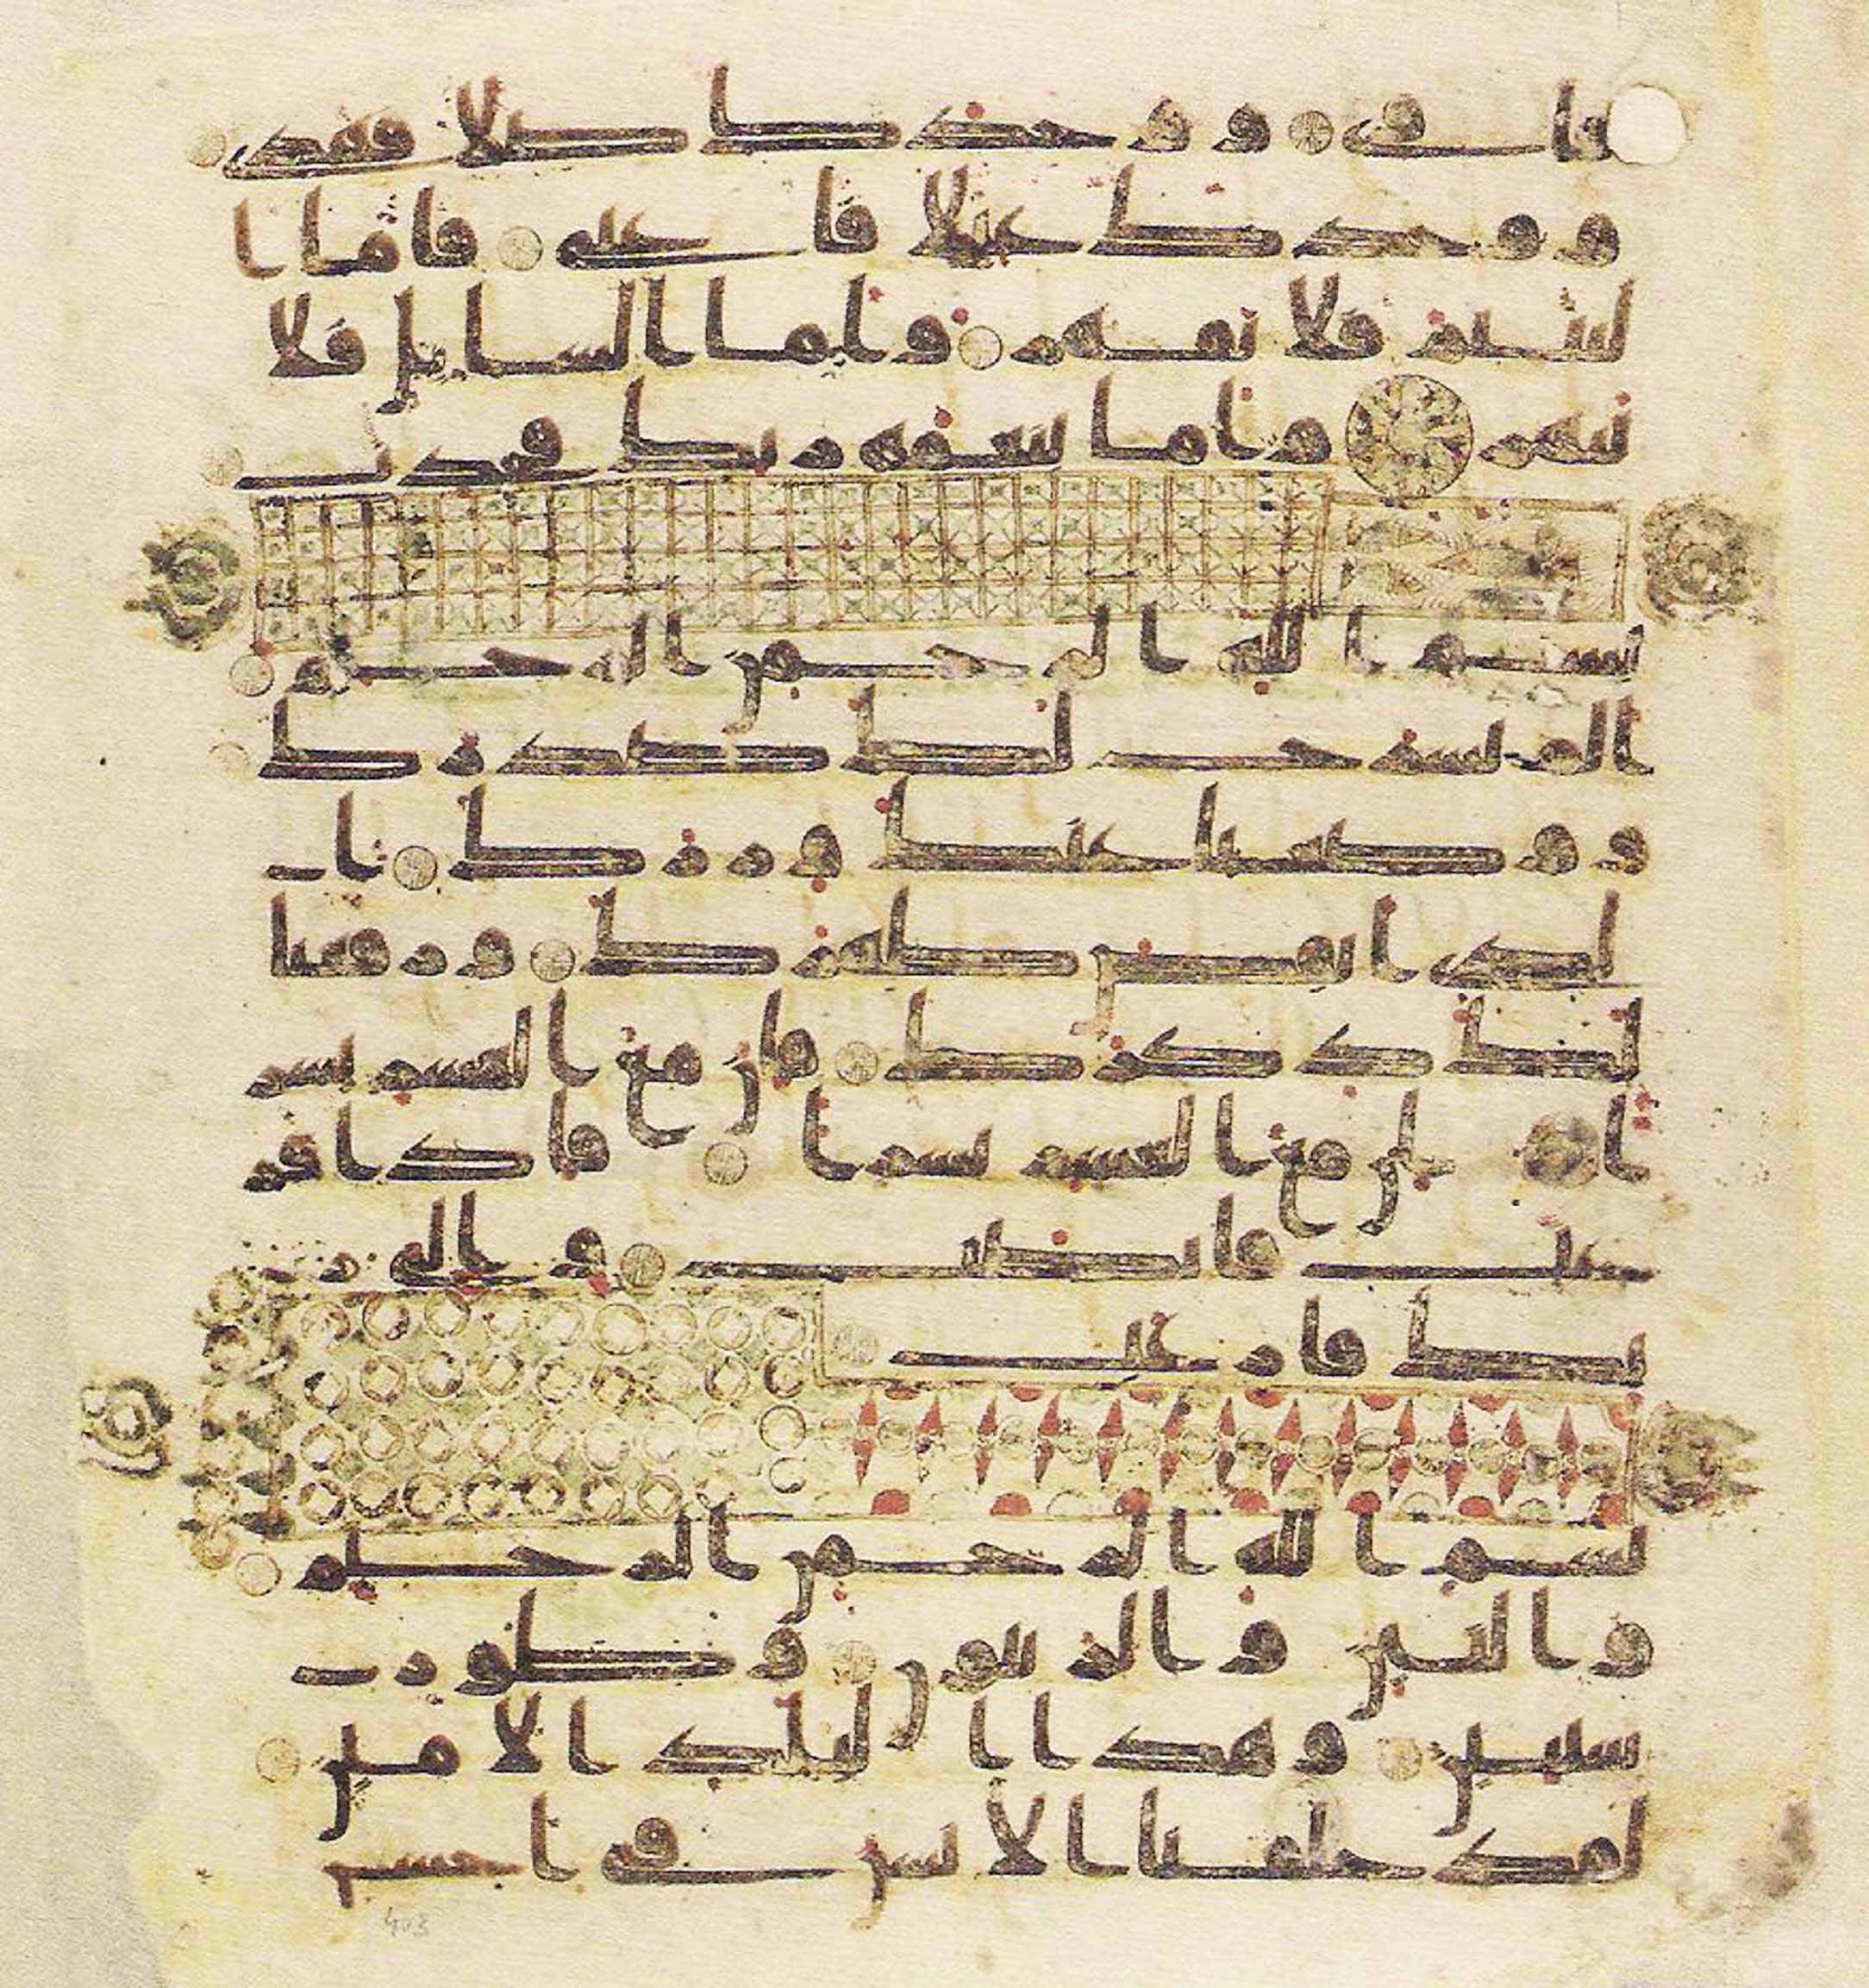 فاوى ووجدك ضالا فهدى
ووجدك عىلا فاغنى فاما ا
ليتيم فلا تقهر واما السايل فلا
تنهر واما بنعمه ربك فحدث
بسم الله الرحمن الرحيم
الم نشرح لك صدرك
ووضعنا عنك وزرك ا
لذى انقض ظهرك ورفعنا
لك ذكرك فان مع العسر يسر
ا ان مع العسر يسرا فاذا فر
غت فانصب والى ر
بك فارغب
بسم الله الرحمن الرحيم
والتين والزيتون وطور
سينين وهذا البلد الامين
لقد خلقنا الانسن فى احسن
403